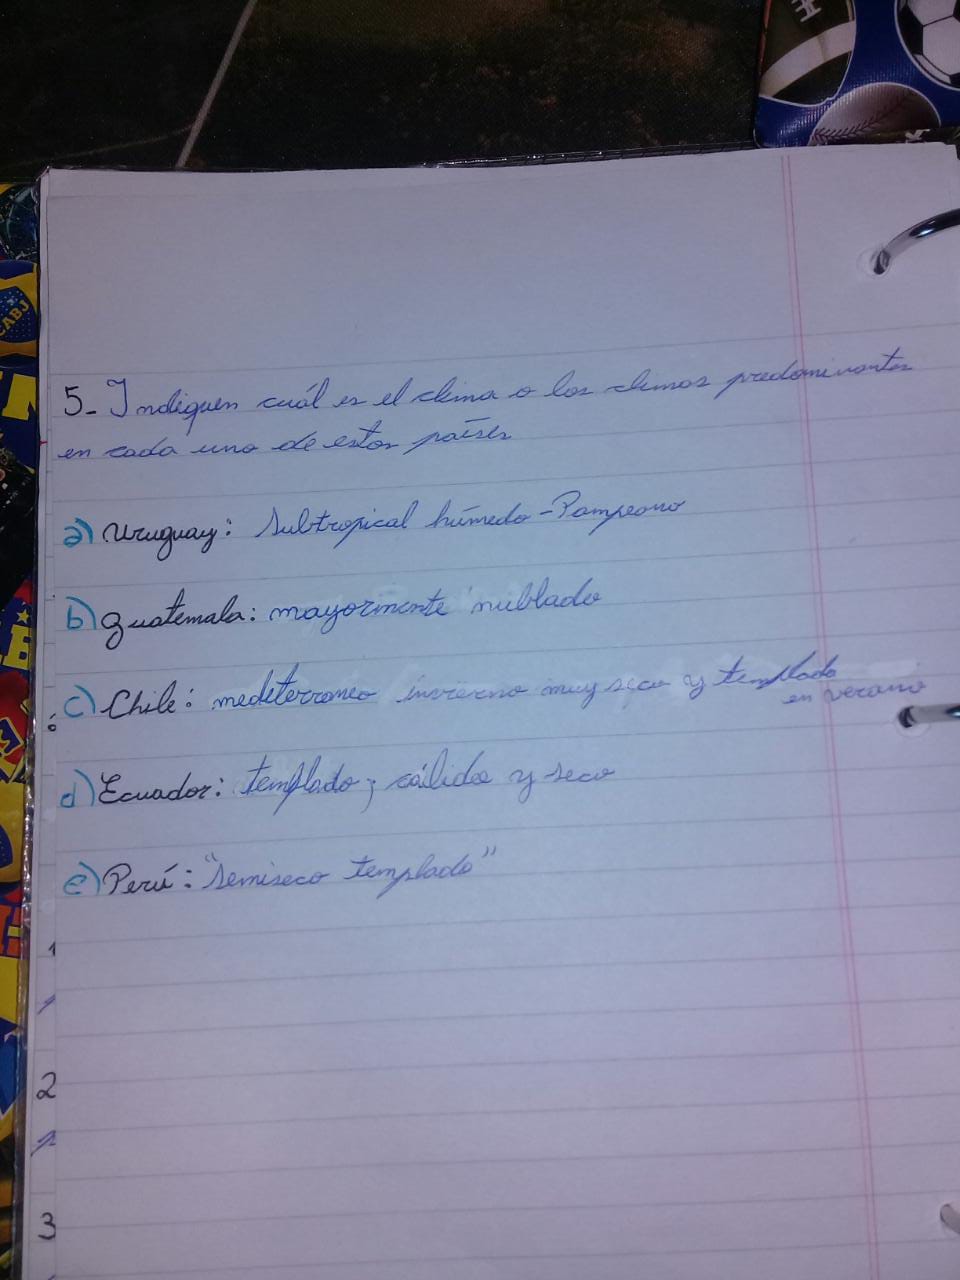 CABJ
5- Indiquen cuál es el clima o los climas predominantes
en cada uno de estos países
a) Uruguay: Subtropical húmedo - Pampeano
b) Guatemala: mayormente nublado
c) Chile: mediterraneo invierno muy seco y templado
en verano
d) Ecuador: templado; cálido y seco
e) Perú: "Semiseco templado"
1
2
3